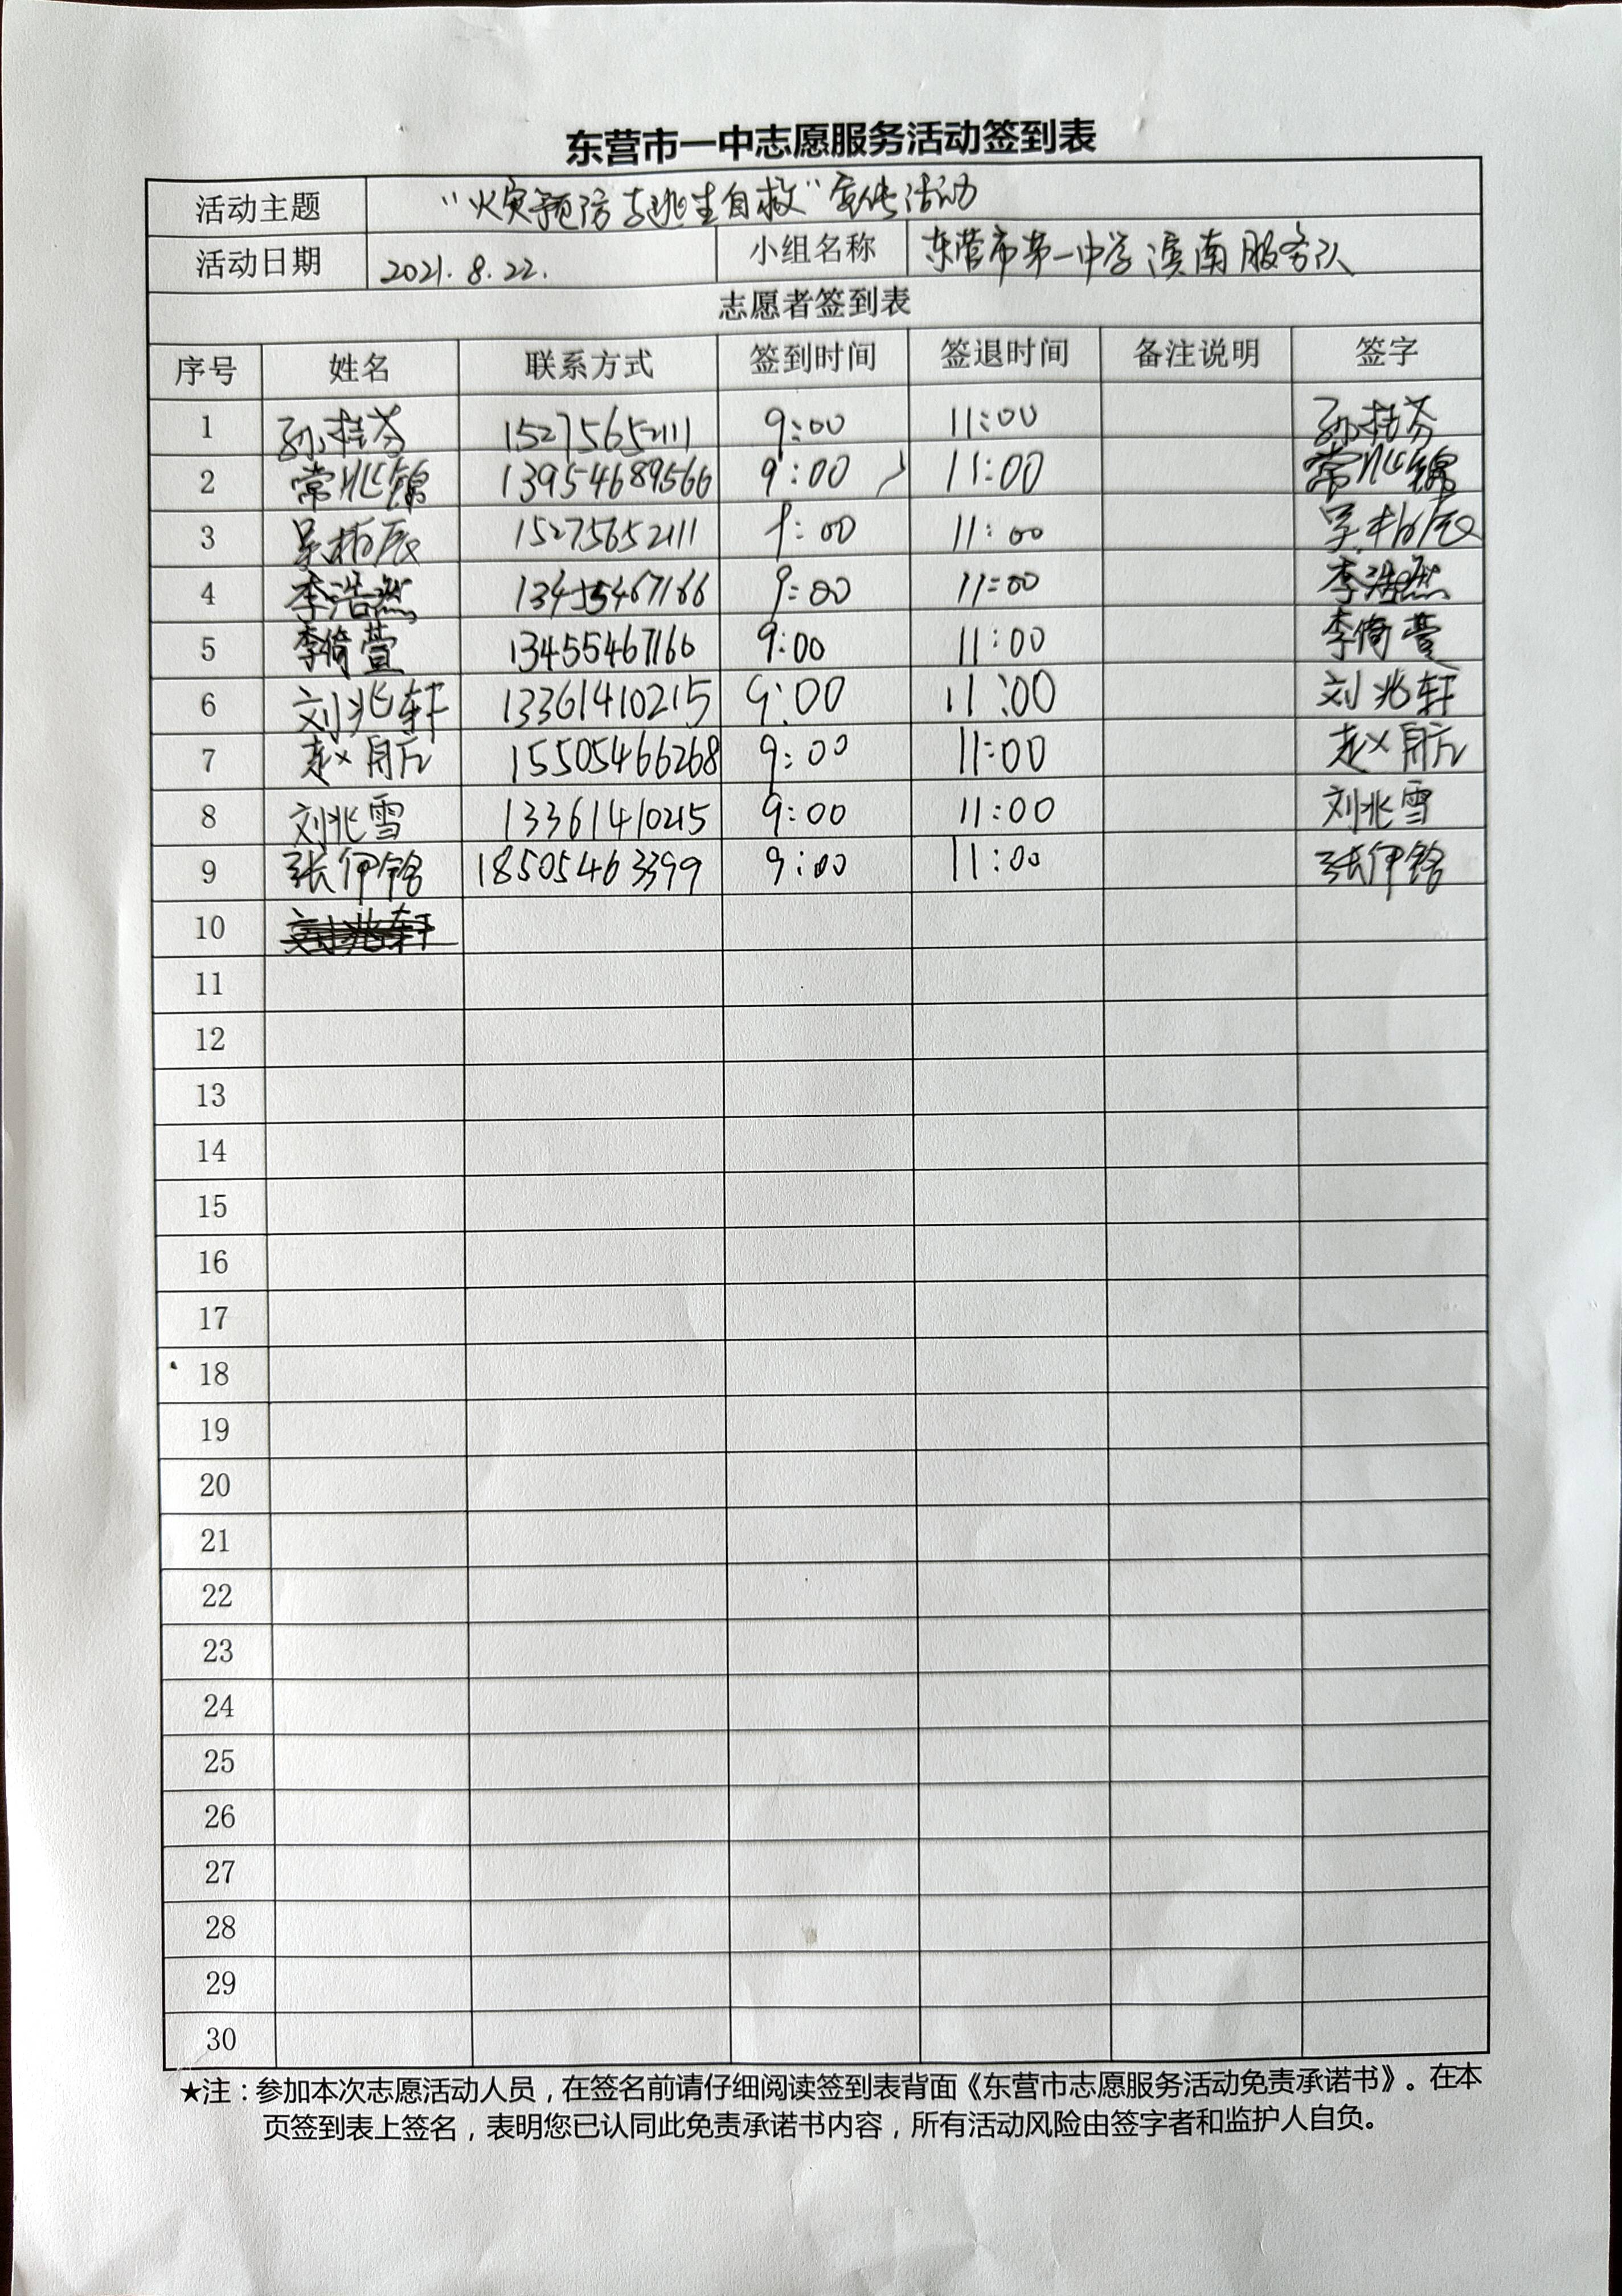 东营市一中志愿服务活动签到表
活动主题 “火灾预防与逃生自救”宣传活动
活动日期 2021.8.22. 小组名称 东营市第一中学滨南服务队
志愿者签到表
序号 姓名 联系方式 签到时间 签退时间 备注说明 签字
1 孙桂芬 15275652111 9:00 11:00 孙桂芬
2 常兆锦 13954689566 9:00 11:00 常兆锦
3 吴柏辰 15275652111 9:00 11:00 吴柏辰
4 李浩然 13455467166 9:00 11:00 李浩然
5 李倚萱 13455467166 9:00 11:00 李倚萱
6 刘兆轩 13361410215 9:00 11:00 刘兆轩
7 赵 15505466268 9:00 11:00 赵
8 刘兆雪 13361410215 9:00 11:00 刘兆雪
9 张伊铭 18505463399 9:00 11:00 张伊铭
10 刘兆轩
11
12
13
14
15
16
17
18
19
20
21
22
23
24
25
26
27
28
29
30
★注：参加本次志愿活动人员，在签名前请仔细阅读签到表背面《东营市志愿服务活动免责承诺书》。在本
页签到表上签名，表明您已认同此免责承诺书内容，所有活动风险由签字者和监护人自负。